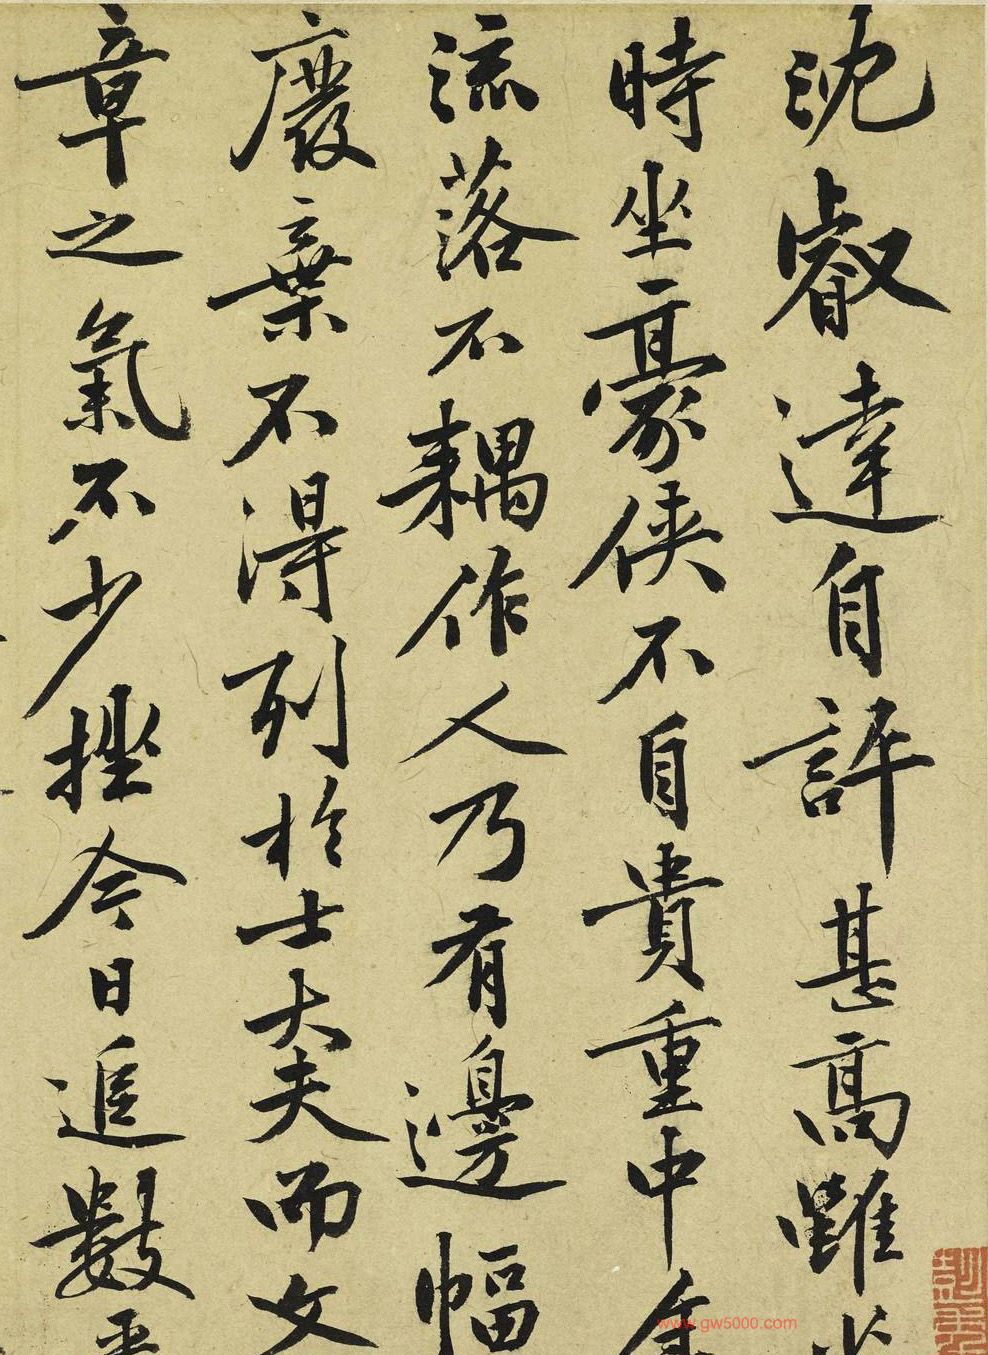 沈睿達自許甚高雖
時坐豪俠不自貴重中
流落不耦作人乃有邊幅
廢棄不得列於士大夫而文
章之氣不少挫今日追數
www.gw5000.com